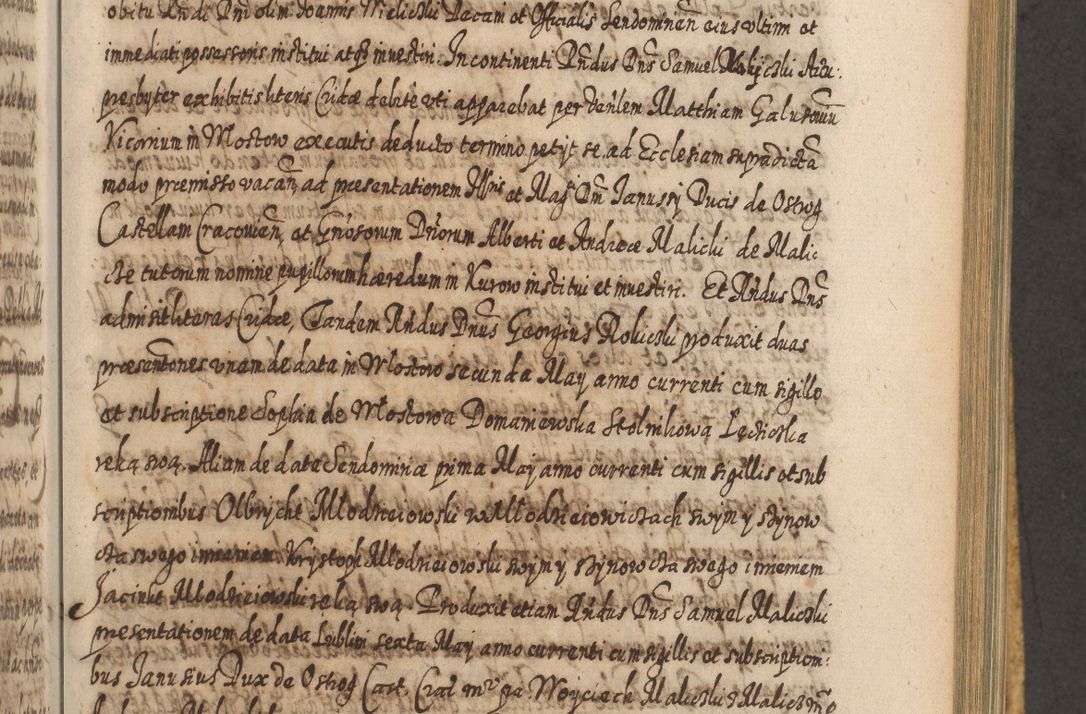 obitu Rndi Dni olim Joannis Mielicki Decani et Officialis Sendomirien eius ultimi et
immediati possessoris institui atq investiri. In continenti Rndus Dns Samuel Malicski Archi-
presbyter exhibitis literis Cridae debite uti apparebat per venlem Matthiam Galusowiu
Vicarium in Mostow executis deducto termino petijt se ad Ecclesiam supradicta
modo praemisso vacan ad praesentationem Illris et Magci Dni Janussij Ducis de Ostrog
Castellani Cracowien, et Gnosorum Dnorum Alberti et Andreae Malicki de Malic
cie tutorum nomine pupillorum haeredum in Kurow institui et investiri. Et Rndus Dns
admisit literas Cridae, Tandem Rndus Dnus Georgius Rolicski produxit duas
praesentones unam de data in Mostow secunda May anno currenti cum sigillo
et subscriptione Sophia de Mostowa Domaniewska Stolnikową Lęcicka
reką swą. Aliam de data Sendomiriae prima May anno currenti cum sigillis et sub
scriptionibus Olbrycht Młodzieiowski w Młodzieiowiczach swym y synow
cta swego imieniem. Krystoph Młodzieiowski swym y synowcta swego imieniem
Jacinkt Młodzieiowski reką swą. Produxit etiam Rndus Dns Samuel Malicski
praesentationem de data Lublini sexta May anno currenti cum sigillis et subscription-
bus Janusius Dux de Ostrog Cast. Cra. mpr ya Woyciech Malicski z Malic